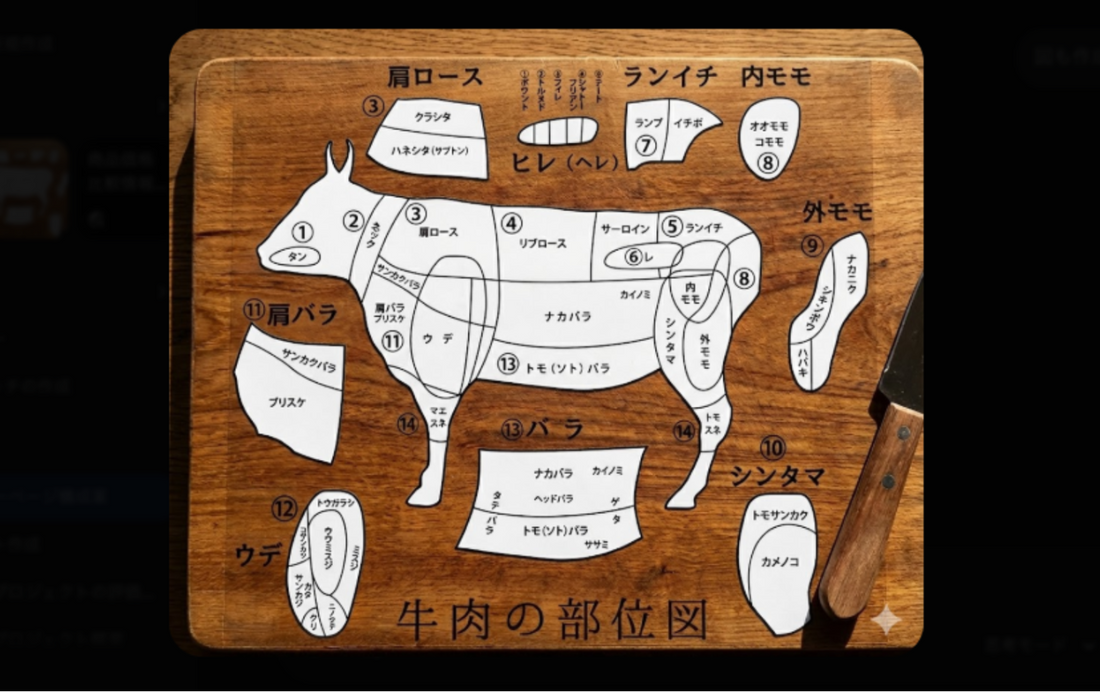 肩ロース
③
クラシタ
ハネシタ(サブトン)
ヒレ(ヘレ)
ランイチ
ランプ
イチボ
⑦
内モモ
オオモモ
コモモ
⑧
①
タン
②
ネック
③
肩ロース
④
リブロース
サーロイン
⑤
ランイチ
⑥
レ
⑧
サンカクバラ
肩バラ
ブリスケ
⑪
ウデ
カイノミ
ナカバラ
⑬
トモ(ソト)バラ
内
モモ
シンタマ
外モモ
マエ
スネ
⑭
トモ
スネ
⑭
外モモ
⑨
ナカニク
シキンボウ
ハバキ
⑪肩バラ
サンカクバラ
ブリスケ
⑬バラ
ナカバラ
カイノミ
タテバラ
ヘッドバラ
ゲタ
トモ(ソト)バラ
ササミ
⑩
シンタマ
トモサンカク
カメノコ
⑫
ウデ
トウガラシ
ウワミスジ
ミスジ
サンカク
カタ
クリ
牛肉の部位図